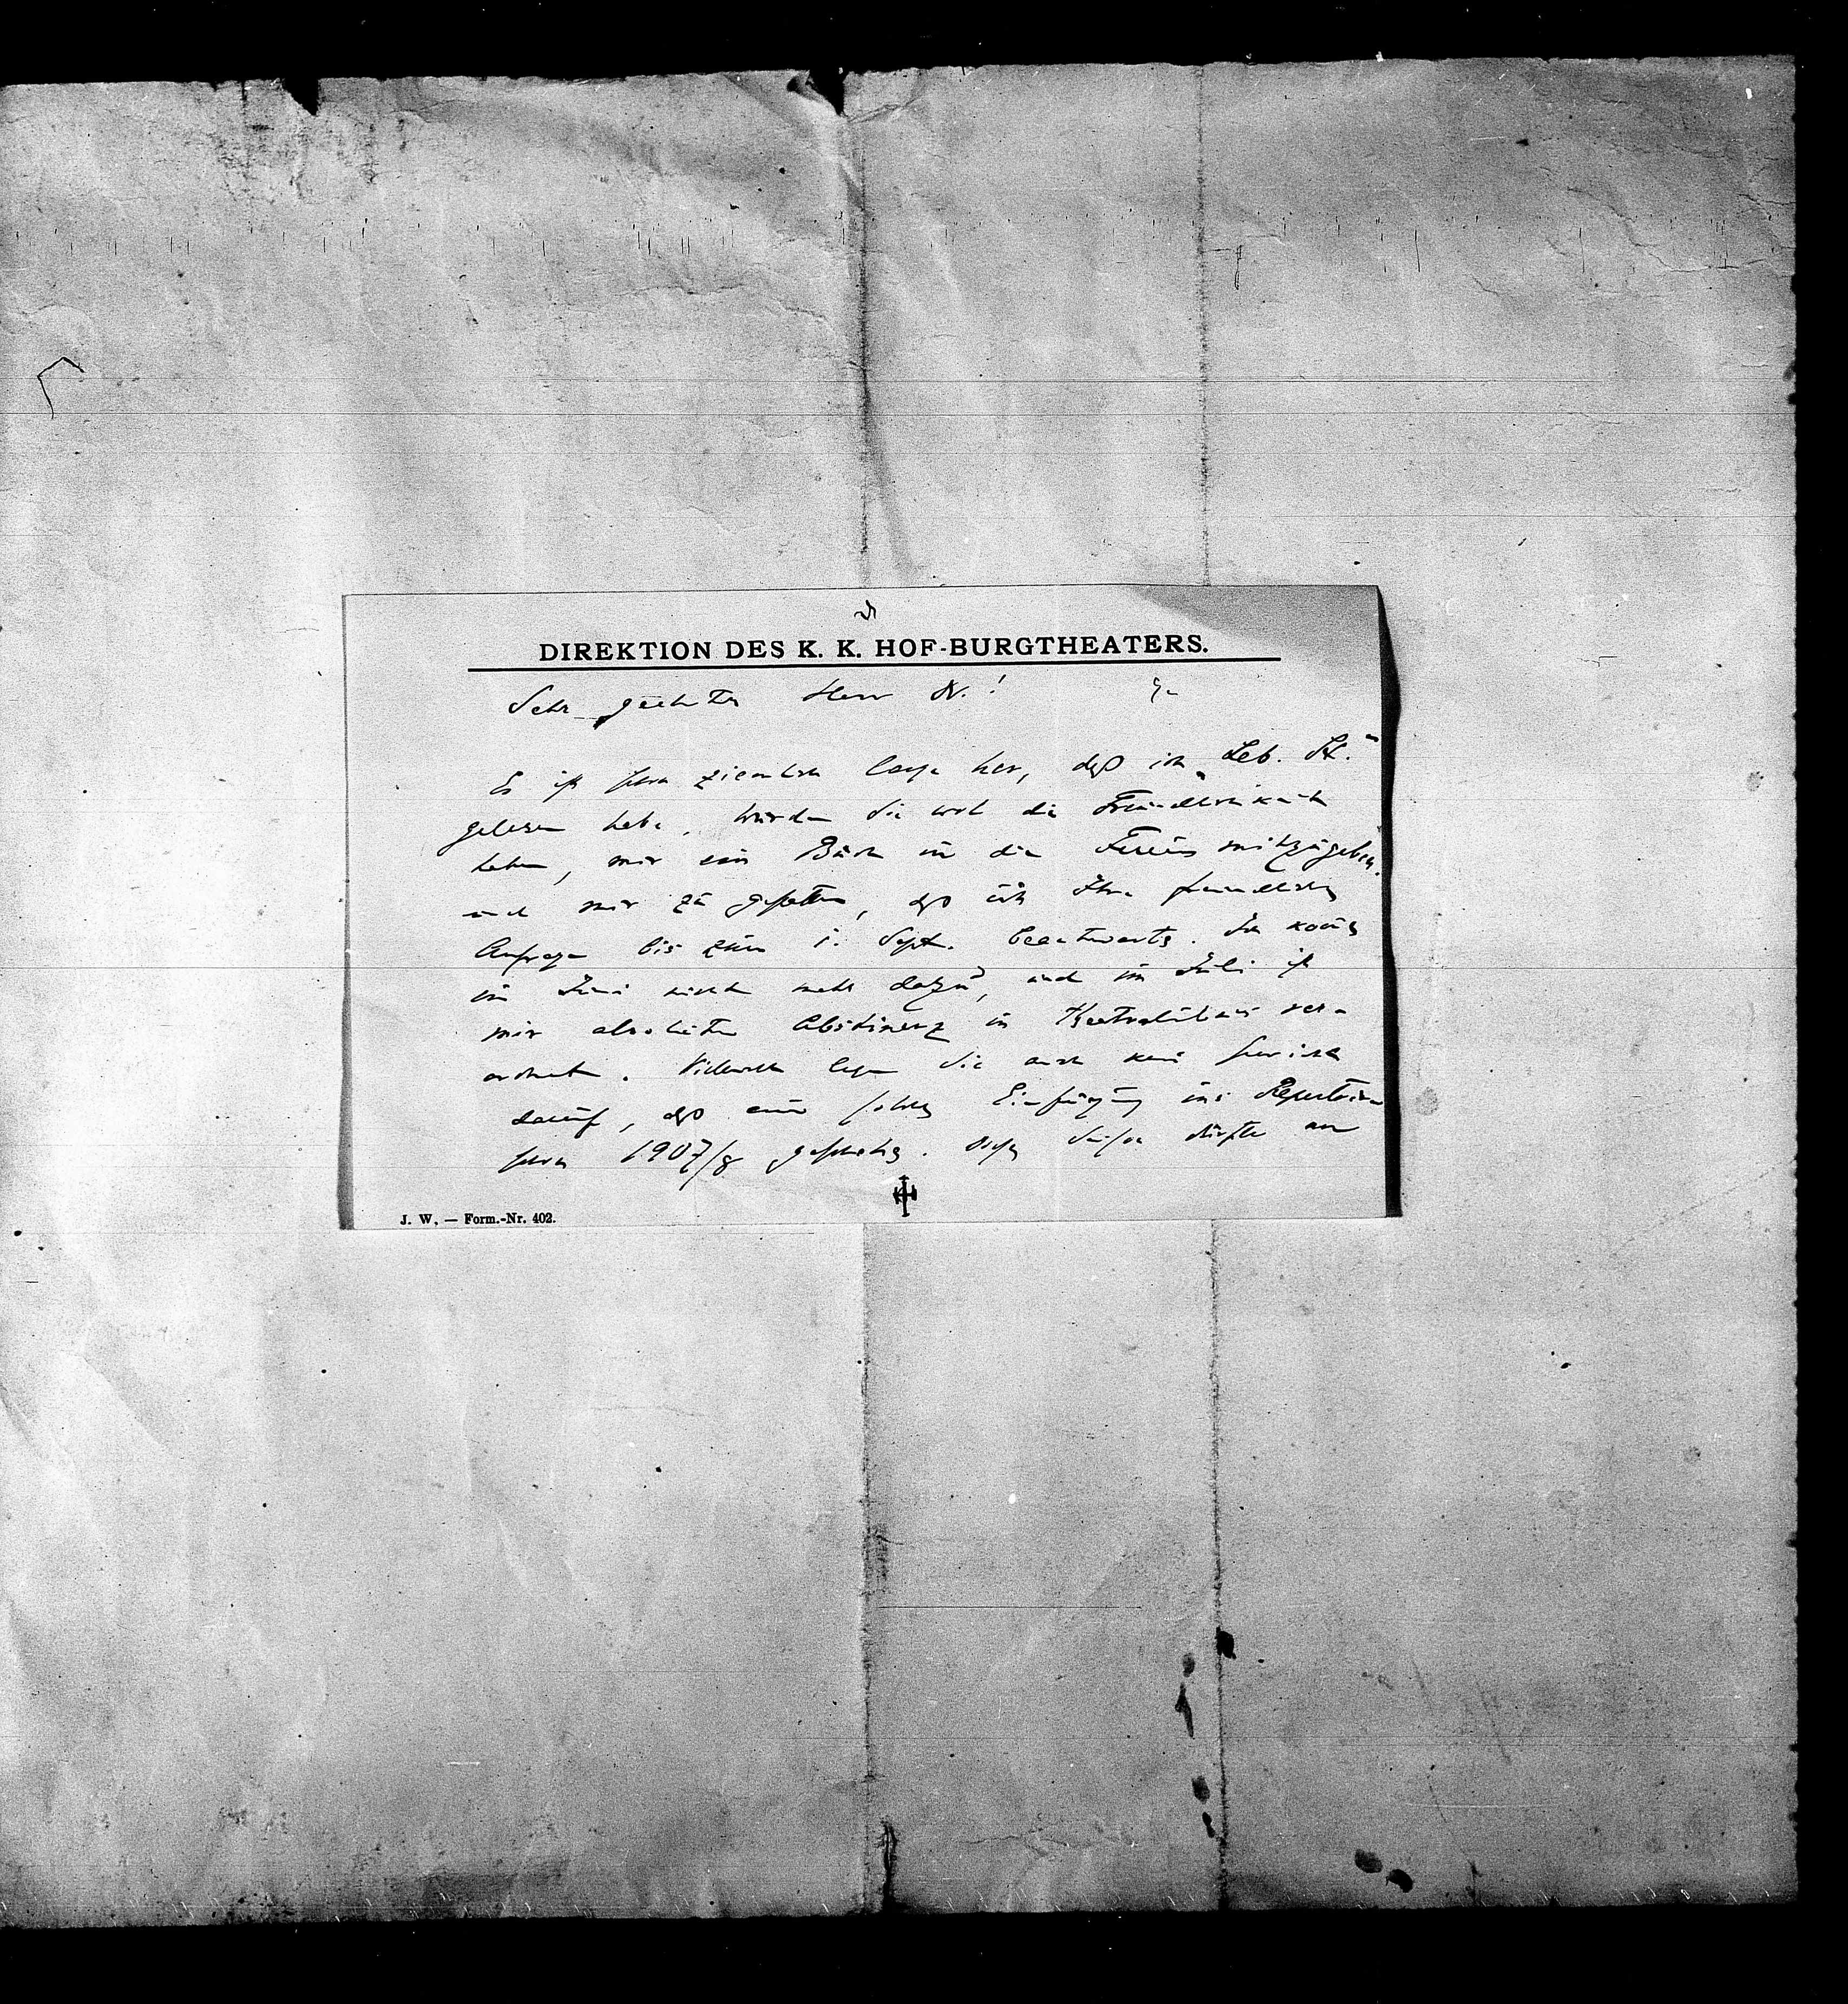 DIREKTION DES K. K. HOF-BURGTHEATERS.
Sehr geehrter Herr Dr.!
Es ist schon ziemlich lange her, daß ich „Leb. St.“
gelesen habe. Würden Sie wol die Freundlichkeit
haben, mir ein Buch in die Ferien mitzugeben.
und mir zu gestatten, daß ich Ihre freundliche
Anfrage bis zum 1. Sept. beantworte. Ich komme
im Juni nicht mehr dazu, und im Juli ist
mir absolute Abstinenz in Theatralibus ver-
ordnet. Vielleicht legen Sie auch kein Gewicht
darauf, daß eine solche Einfügung ins Repertoire
schon 1907/8 geschehe. Diese Saison dürfte an
J. W. — Form.-Nr. 402.